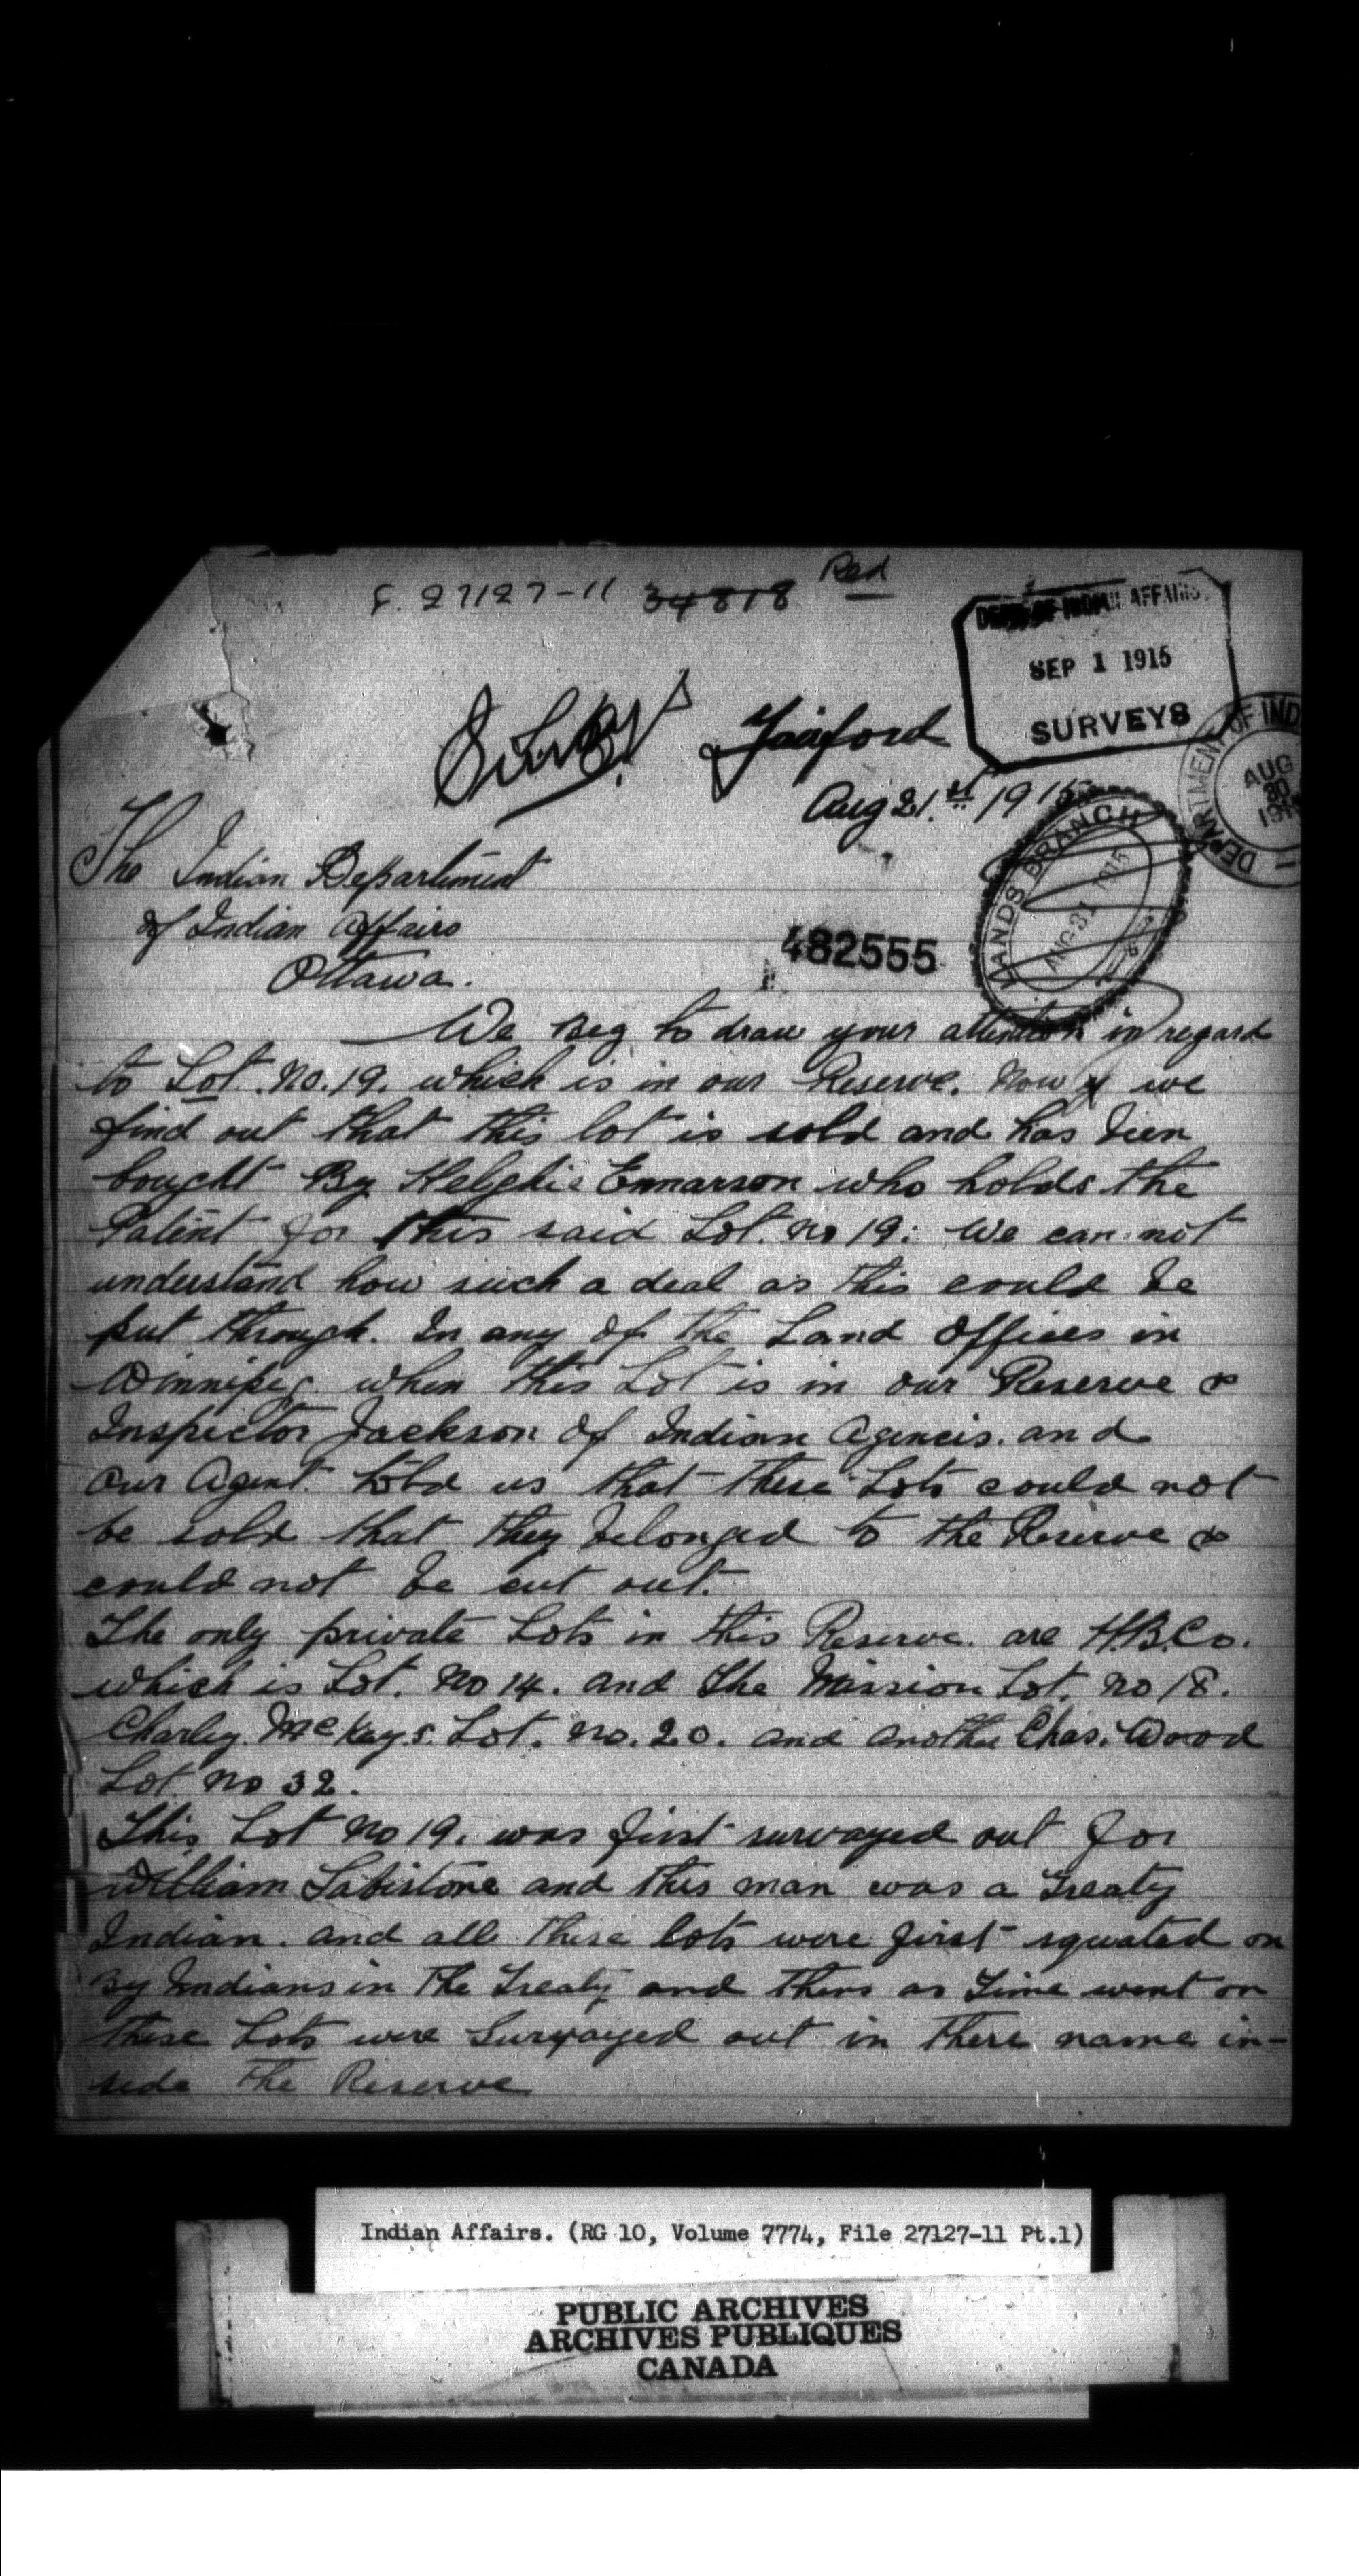 F. 27127-11 34818 Red
DEPT. OF INDIAN AFFAIRS
SEP 1 1915
SURVEYS
DEPARTMENT OF IND
AUG
30
1915
Fairford
Aug 21.st 1915
LANDS BRANCH
AUG 31 1915
The Indian Department
of Indian Affairs
Ottawa.
482555
We Beg to draw your attention in regard
to Lot. No. 19. which is in our Reserve. Now we
find out that this lot is sold and has been
bought By Helghie Ennarson who holds the
Patent for this said Lot. No 19: We can not
understand how such a deal as this could be
put through. In any of the Land Offices in
Winnipeg when this Lot is in our Reserve &
Inspector Jackson of Indian Agencis. and
our Agent. told us that these Lots could not
be sold that they belonged to the Reserve &
could not be cut out.
The only private Lots in this Reserve. are H.B.Co.
which is Lot. No 14. and The Mission Lot. No 18.
Charley McKay's Lot. No. 20. and another Chas. Wood
Lot No 32.
This Lot No 19. was first survayed out for
William Sabistone and this man was a Treaty
Indian. and all these lots were first squated on
By Indians in The Treaty and thens as Time went on
these Lots were Survayed out in There name in-
side The Reserve
Indian Affairs. (RG 10, Volume 7774, File 27127-11 Pt.1)
PUBLIC ARCHIVES
ARCHIVES PUBLIQUES
CANADA